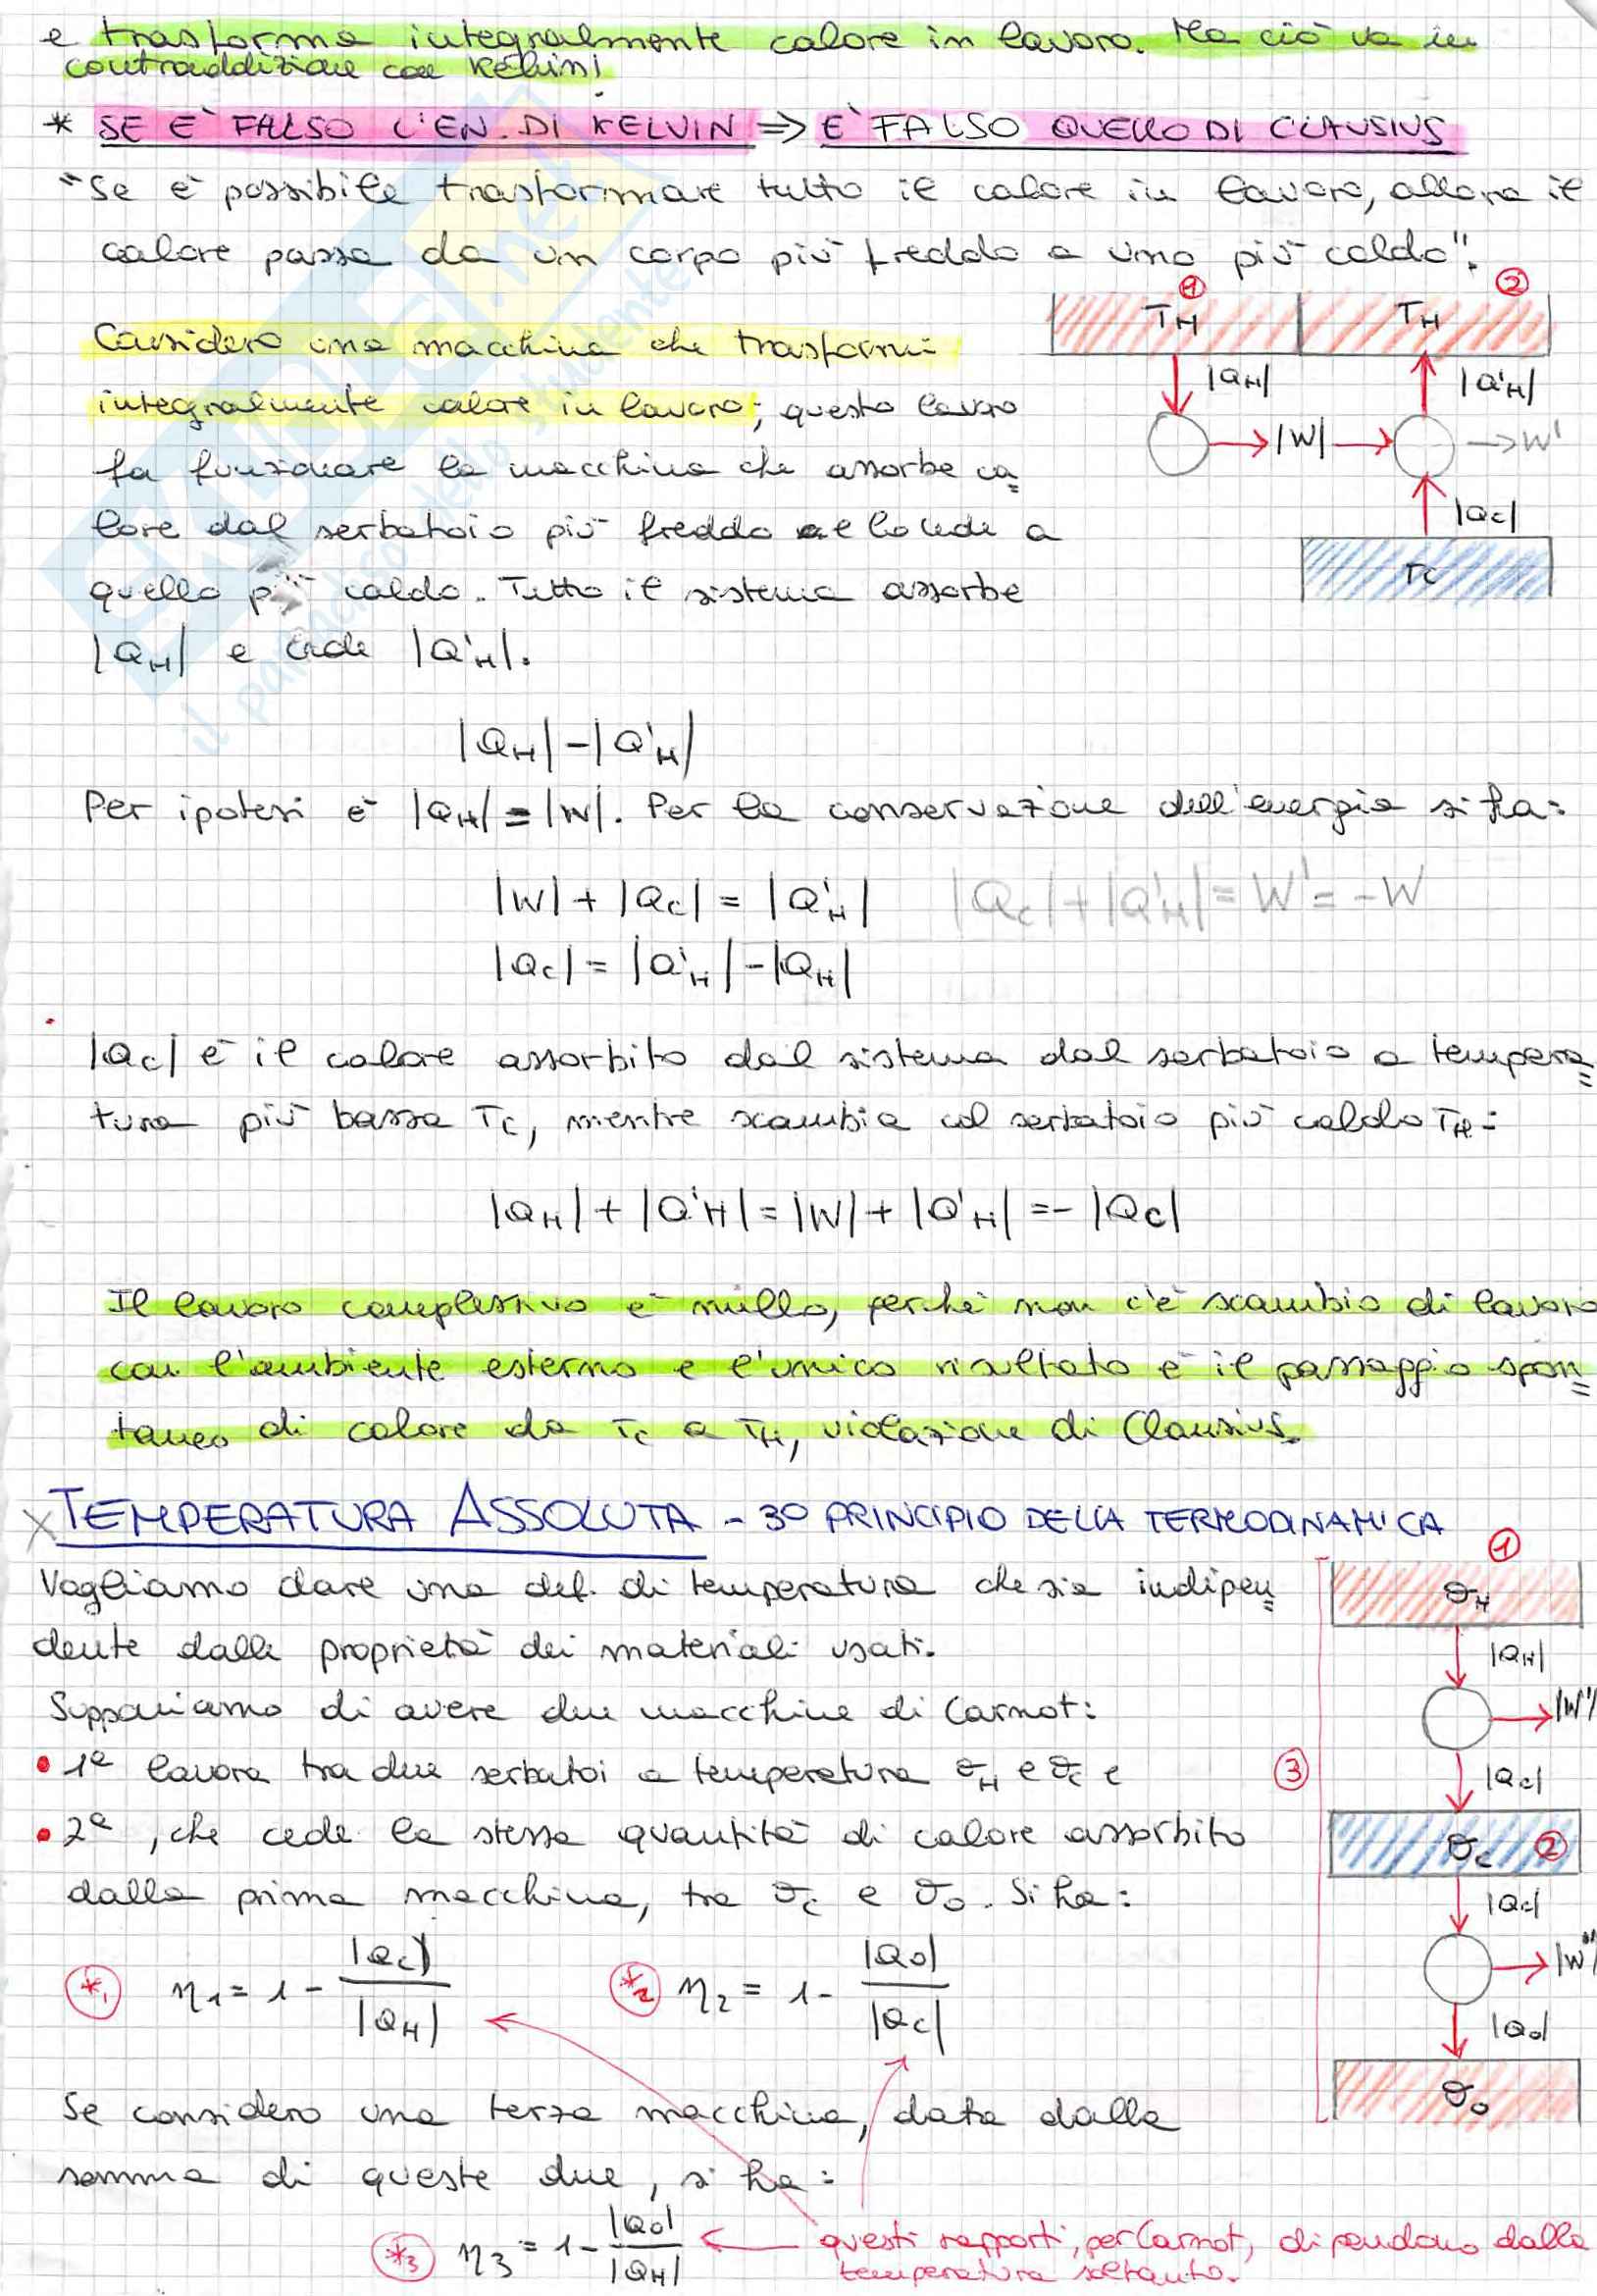 e trasforma integralmente calore in lavoro. Ma ciò va in
contraddizione con Kelvin!
* SE E' FALSO L'EN. DI KELVIN ⇒ E' FALSO QUELLO DI CLAUSIUS
"Se è possibile trasformare tutto il calore in lavoro, allora il
calore passa da un corpo più freddo a uno più caldo".
① ②
T_H T_H
Considero una macchina che trasformi
integralmente calore in lavoro; questo lavoro
|Q_H| |Q'_H|
|W| W'
fa funzionare la macchina che assorbe ca=
|Q_C|
lore dal serbatoio più freddo e lo cede a
T_C
quello più caldo. Tutto il sistema assorbe
|Q_H| e cede |Q'_H|.
|Q_H| - |Q'_H|
Per ipotesi è |Q_H| = |W|. Per la conservazione dell'energia si ha:
|W| + |Q_C| = |Q'_H| |Q_C| + |Q'_H| = W' = -W
|Q_C| = |Q'_H| - |Q_H|
|Q_C| è il calore assorbito dal sistema dal serbatoio a tempera=
tura più bassa T_C, mentre scambia col serbatoio più caldo T_H:
|Q_H| + |Q'H| = |W| + |Q'_H| = - |Q_C|
Il lavoro complessivo è nullo, perché non c'è scambio di lavoro
con l'ambiente esterno e l'unico risultato è il passaggio spon=
taneo di calore da T_C a T_H, violazione di Clausius.
TEMPERATURA ASSOLUTA - 3° PRINCIPIO DELLA TERMODINAMICA
①
Vogliamo dare una def. di temperatura che sia indipen=
ϑ_H
dente dalle proprietà dei materiali usati.
|Q_H|
Supponiamo di avere due macchine di Carnot:
|W'|
• 1ª lavora tra due serbatoi a temperatura ϑ_H e ϑ_C e
③ |Q_C|
• 2ª, che cede la stessa quantità di calore assorbito
ϑ_C ②
dalla prima macchina, tra ϑ_C e ϑ_0. Si ha:
|Q_C|
*1 η_1 = 1 - |Q_C| / |Q_H| *2 η_2 = 1 - |Q_0| / |Q_C|
|W''|
|Q_0|
ϑ_0
Se considero una terza macchina, data dalla
somma di queste due, si ha:
*3 η_3 = 1 - |Q_0| / |Q_H| questi rapporti, per Carnot, dipendono dalla
temperatura soltanto.